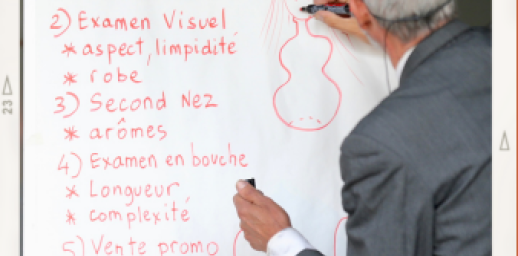 2) Examen Visuel
* aspect, limpidité
* robe
3) Second Nez
* arômes
4) Examen en bouche
* Longueur
* complexité
5) Vente promo
23